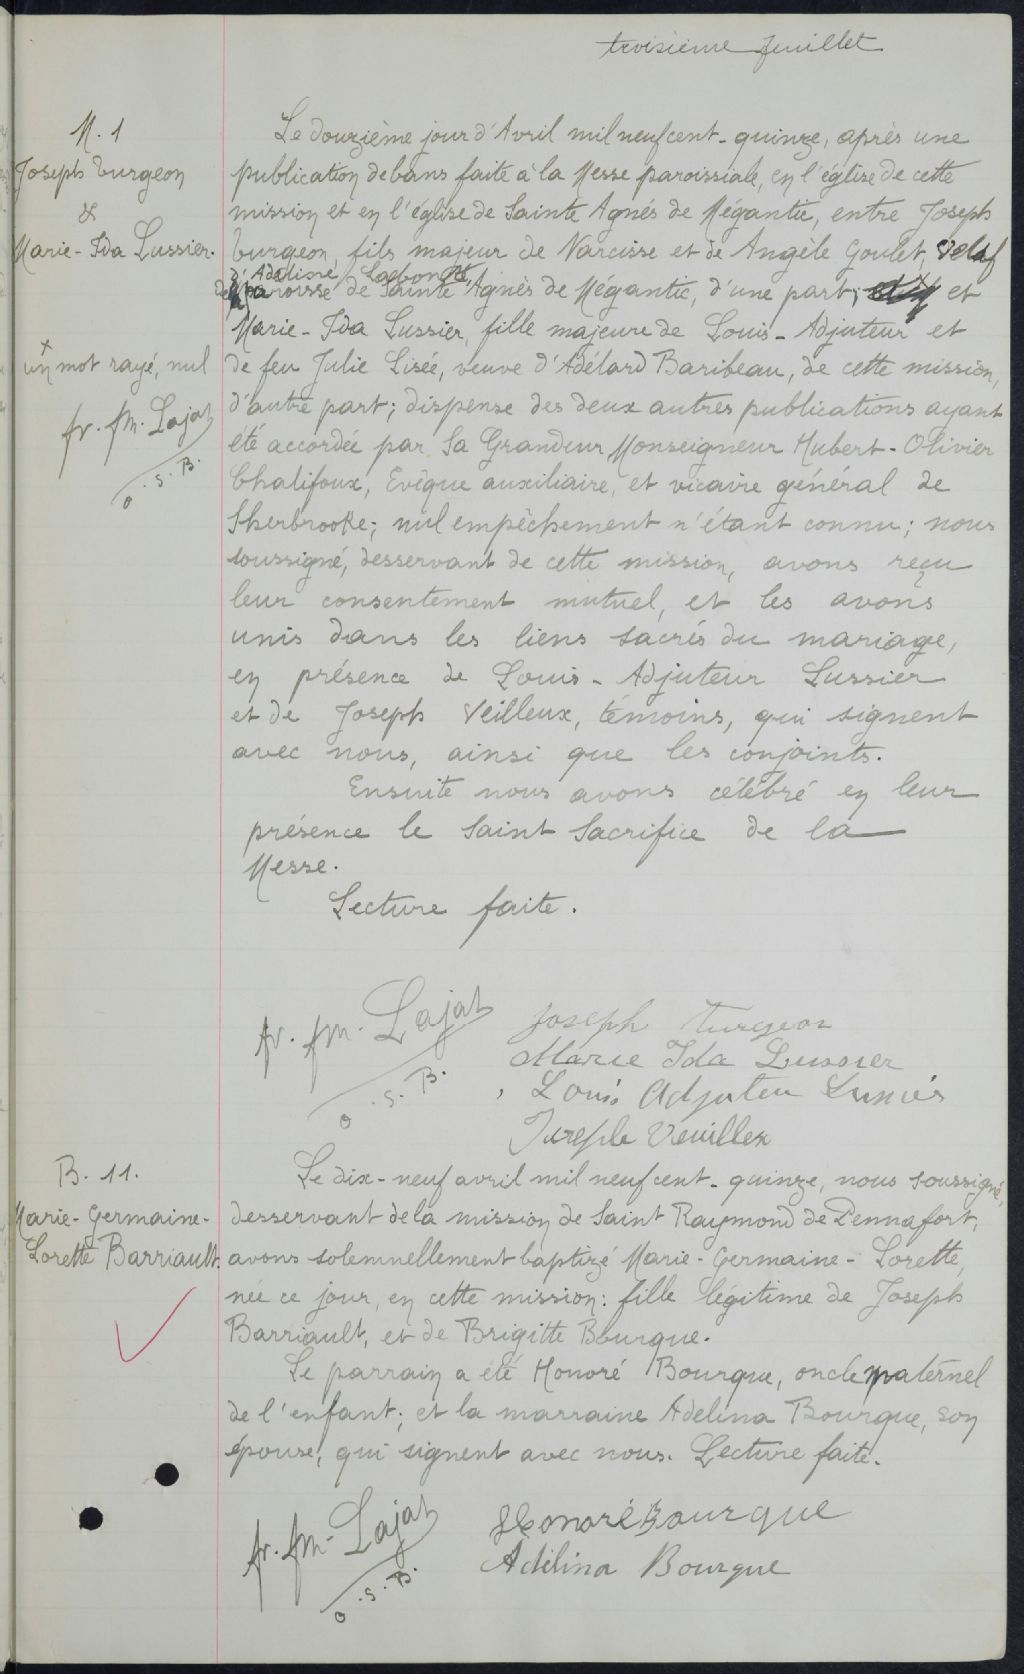 troisième feuillet
M. 1
Joseph Turgeon
&
Marie-Ida Lussier.
Le douzième jour d'Avril mil neuf cent-quinze, après une
publication de bans faite à la Messe paroissiale, en l'église de cette
mission et en l'église de Sainte Agnès de Mégantic, entre Joseph
Turgeon, fils majeur de Narcisse et de Angèle Goulet, veuf
d'Adelisse
de la paroisse de Sainte Agnès de Mégantic, d'une part; et
Marie-Ida Lussier, fille majeure de Louis-Adjuteur et
de feu Julie Lisée, veuve d'Adélard Baribeau, de cette mission,
d'autre part; dispense des deux autres publications ayant
été accordée par Sa Grandeur Monseigneur Hubert-Olivier
Chalifoux, Evêque auxiliaire, et vicaire général de
Sherbrooke; nul empêchement n'étant connu; nous
soussigné, desservant de cette mission, avons reçu
leur consentement mutuel, et les avons
unis dans les liens sacrés du mariage,
en présence de Louis-Adjuteur Lussier
et de Joseph Veilleux, témoins, qui signent
avec nous, ainsi que les conjoints.
Ensuite nous avons célébré en leur
présence le Saint Sacrifice de la
Messe.
Lecture faite.
+
un mot rayé, nul
fr. fm. Lajat
o.s.B.
fr. fm. Lajat
o.s.B.
Joseph Turgeon
Marie Ida Lussier
Louis Adjuteu Lussier
Joseph Veuillex
B. 11.
Marie-Germaine-
Lorette Barriault.
Le dix-neuf avril mil neuf cent-quinze, nous soussigné,
desservant de la mission de Saint Raymond de Pennafort,
avons solennellement baptizé Marie-Germaine-Lorette,
née ce jour, en cette mission: fille légitime de Joseph
Barriault, et de Brigitte Bourque.
Le parrain a été Honoré Bourque, oncle maternel
de l'enfant; et la marraine Adelina Bourque, son
épouse, qui signent avec nous. Lecture faite.
fr. fm. Lajat
o.s.B.
Honoré Bourque
Adélina Bourque